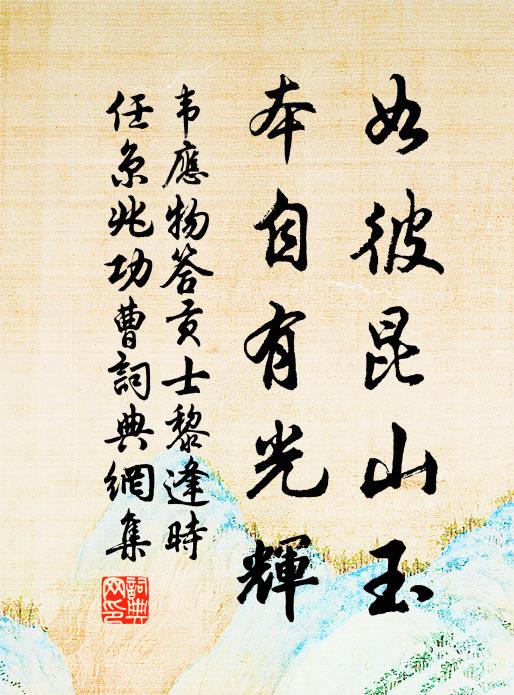 如彼昆山玉
本自有光輝
韦應物答贡士黎逢時
任京兆功曹詞典網集
詞典網印